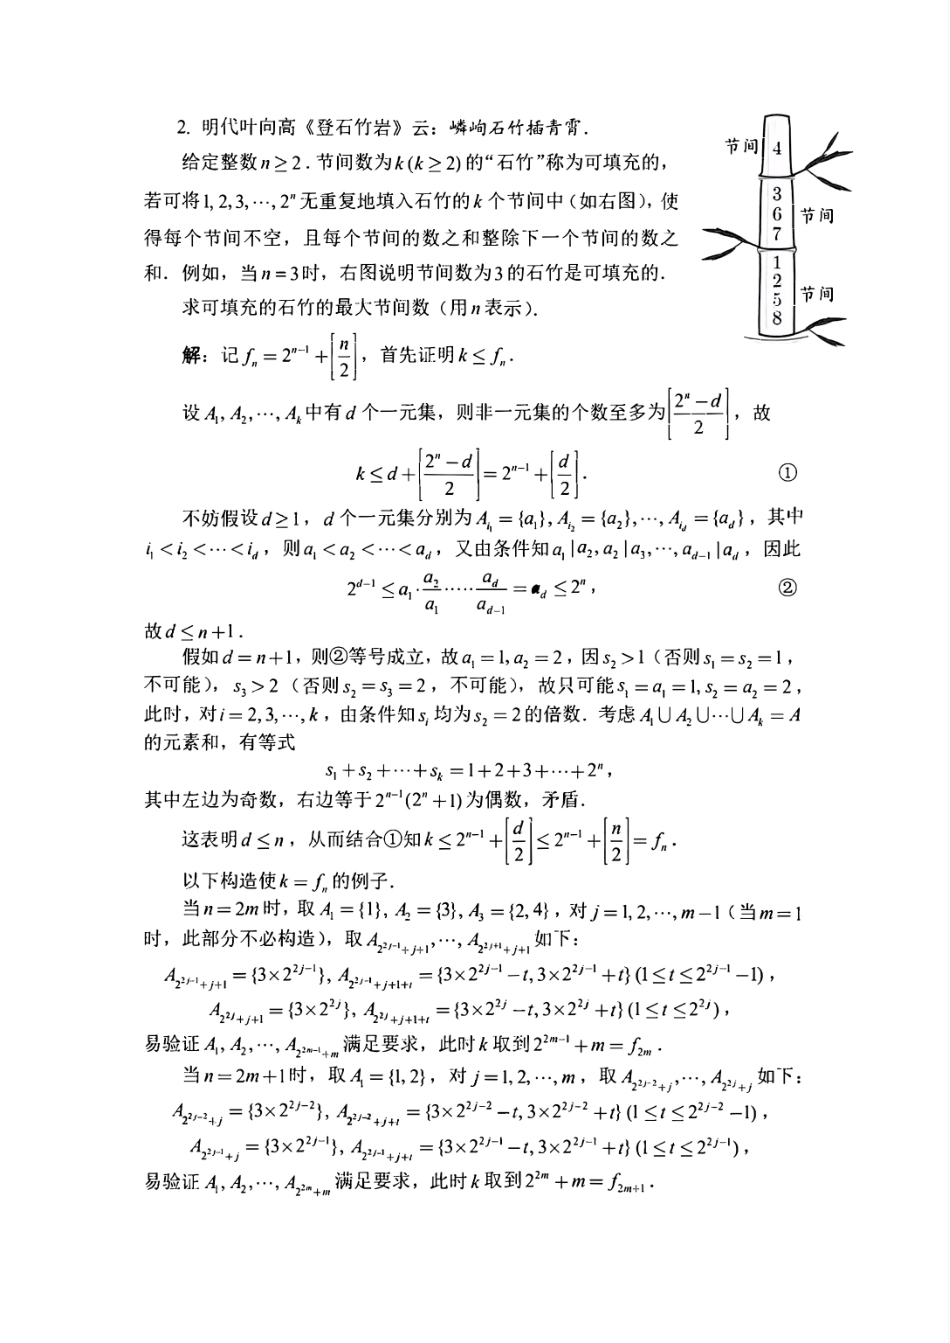 2. 明代叶向高《登石竹岩》云：嶙峋石竹插青霄.
给定整数 n ≥ 2 . 节间数为 k (k ≥ 2) 的“石竹”称为可填充的，
若可将 1, 2, 3, ⋯, 2ⁿ 无重复地填入石竹的 k 个节间中（如右图），使
得每个节间不空，且每个节间的数之和整除下一个节间的数之
和．例如，当 n = 3 时，右图说明节间数为 3 的石竹是可填充的．
求可填充的石竹的最大节间数（用 n 表示）．
节间 4
3
6 节间
7
1
2
5 节间
8
解：记 f_n = 2^{n-1} + [n/2]，首先证明 k ≤ f_n .
设 A_1, A_2, ⋯, A_k 中有 d 个一元集，则非一元集的个数至多为 [(2^n − d)/2]，故
k ≤ d + [(2^n − d)/2] = 2^{n-1} + [d/2] . ①
不妨假设 d ≥ 1，d 个一元集分别为 A_{i_1} = {a_1}, A_{i_2} = {a_2}, ⋯, A_{i_d} = {a_d}，其中
i_1 < i_2 < ⋯ < i_d，则 a_1 < a_2 < ⋯ < a_d，又由条件知 a_1 | a_2, a_2 | a_3, ⋯, a_{d-1} | a_d，因此
2^{d-1} ≤ a_1 · a_2/a_1 ⋯⋯ a_d/a_{d-1} = a_d ≤ 2^n， ②
故 d ≤ n+1 .
假如 d = n+1，则②等号成立，故 a_1 = 1, a_2 = 2，因 s_2 > 1（否则 s_1 = s_2 = 1，
不可能），s_3 > 2（否则 s_2 = s_3 = 2，不可能），故只可能 s_1 = a_1 = 1, s_2 = a_2 = 2，
此时，对 i = 2, 3, ⋯, k，由条件知 s_i 均为 s_2 = 2 的倍数．考虑 A_1 ∪ A_2 ∪ ⋯ ∪ A_k = A
的元素和，有等式
s_1 + s_2 + ⋯ + s_k = 1 + 2 + 3 + ⋯ + 2^n，
其中左边为奇数，右边等于 2^{n-1}(2^n + 1) 为偶数，矛盾．
这表明 d ≤ n，从而结合①知 k ≤ 2^{n-1} + [d/2] ≤ 2^{n-1} + [n/2] = f_n .
以下构造使 k = f_n 的例子．
当 n = 2m 时，取 A_1 = {1}, A_2 = {3}, A_3 = {2, 4}，对 j = 1, 2, ⋯, m − 1（当 m = 1
时，此部分不必构造），取 A_{2^{2j-1}+j+1}, ⋯, A_{2^{2j+1}+j+1} 如下：
A_{2^{2j-1}+j+1} = {3×2^{2j-1}}, A_{2^{2j-1}+j+1+t} = {3×2^{2j-1} − t, 3×2^{2j-1} + t} (1 ≤ t ≤ 2^{2j-1} − 1)，
A_{2^{2j}+j+1} = {3×2^{2j}}, A_{2^{2j}+j+1+t} = {3×2^{2j} − t, 3×2^{2j} + t} (1 ≤ t ≤ 2^{2j})，
易验证 A_1, A_2, ⋯, A_{2^{2m-1}+m} 满足要求，此时 k 取到 2^{2m-1} + m = f_{2m} .
当 n = 2m+1 时，取 A_1 = {1, 2}，对 j = 1, 2, ⋯, m，取 A_{2^{2j-2}+j}, ⋯, A_{2^{2j}+j} 如下：
A_{2^{2j-2}+j} = {3×2^{2j-2}}, A_{2^{2j-2}+j+t} = {3×2^{2j-2} − t, 3×2^{2j-2} + t} (1 ≤ t ≤ 2^{2j-2} − 1)，
A_{2^{2j-1}+j} = {3×2^{2j-1}}, A_{2^{2j-1}+j+t} = {3×2^{2j-1} − t, 3×2^{2j-1} + t} (1 ≤ t ≤ 2^{2j-1})，
易验证 A_1, A_2, ⋯, A_{2^{2m}+m} 满足要求，此时 k 取到 2^{2m} + m = f_{2m+1} .